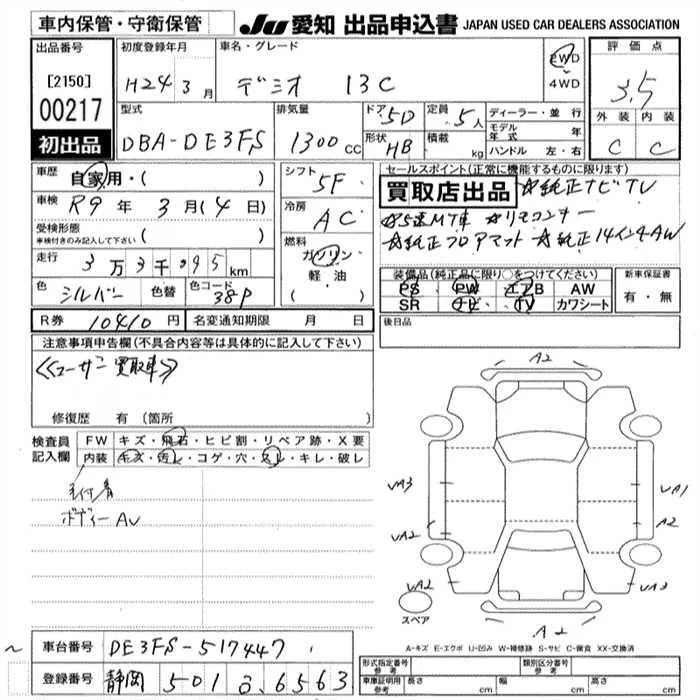 車内保管・守衛保管
JU 愛知 出品申込書 JAPAN USED CAR DEALERS ASSOCIATION
出品番号
[2150]
00217
初出品
初度登録年月
H24 3月
車名・グレード
デミオ 13C
2WD
4WD
評価点
3.5
外装 内装
C C
型式
DBA-DE3FS
排気量
1300cc
ドア 5D
形状 HB
定員 5人
積載 kg
ディーラー・並行
モデル年式 年
ハンドル 左・右
車歴
自家用・( )
車検
R9年 3月(4日)
受検形態
車検付きのみ記入して下さい ( )
走行
3万3千95km
色
シルバー
色替
色コード
38P
シフト
5F
冷房
AC
燃料
ガソリン
軽油
( )
セールスポイント(正常に機能するものに限ります)
買取店出品 ☆純正ナビTV
☆5速MT車 ☆リモコンキー
☆純正フロアマット ☆純正14インチAW
装備品(純正品に限り○をつけてください)
PS PW エアB AW
SR ナビ TV カワシート
新車保証書
有・無
R券 10410円
名変通知期限 月 日
後日品
注意事項申告欄(不具合内容等は具体的に記入して下さい)
《ユーザー買取車》
修復歴 有(箇所
検査員記入欄
FW キズ・飛石・ヒビ割・リペア跡・X要
内装 キズ・汚レ・コゲ・穴・スレ・キレ・破レ
ボディーAU
A2
UA3
UA2
UA2
UA1
A2
UA3
A2
スペア
A-キズ E-エクボ U-凹み W-補修跡 S-サビ C-腐食 XX-交換済
車台番号 DE3FS-517447
登録番号 静岡 501 る 6563
形式指定番号 参考
類別区分番号 参考
車庫証明用 参考 長さ cm 幅 cm 高さ cm